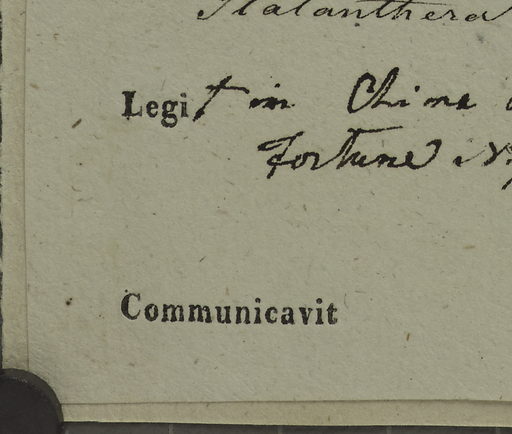 Platanthera
Legit in China
Fortune N
Communicavit